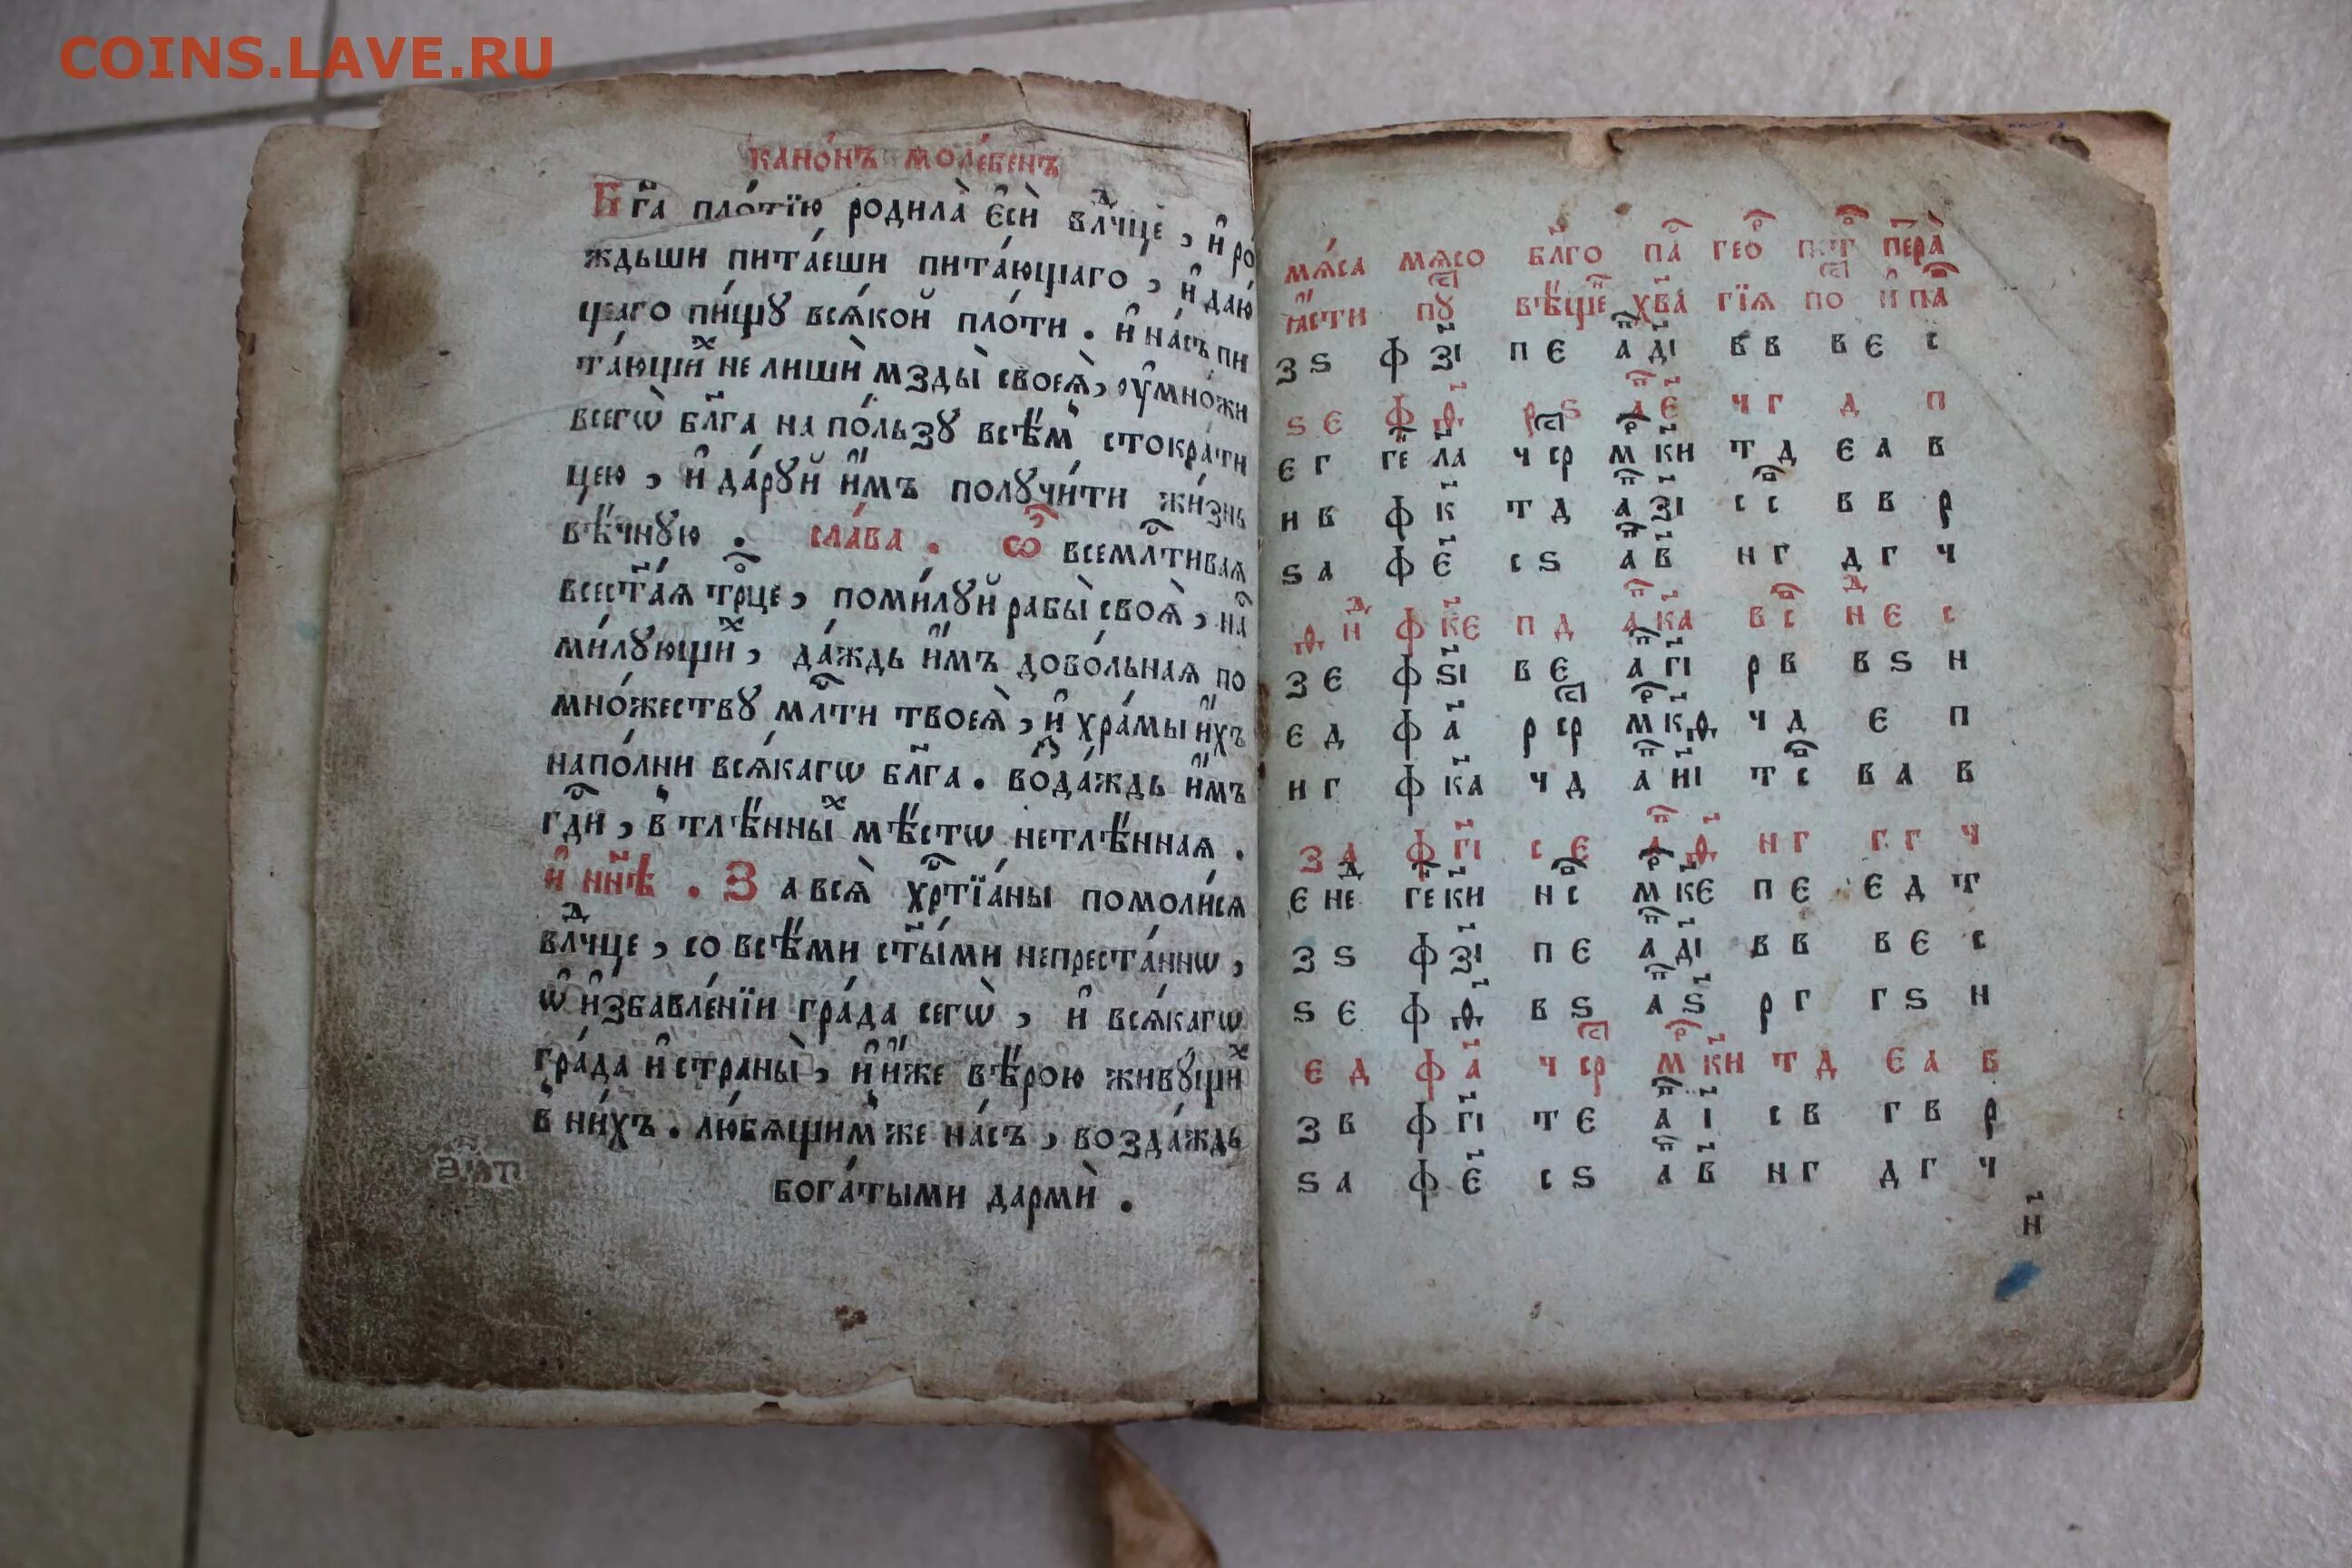 COINS.LAVE.RU
кано́нъ моле́бенъ
Бг҃а пло́тїю родила̀ є҆сѝ влⷣчце, и҆ ро
ждьши пита́еши пита́ющаго, и҆ даю́
щаго пи́щꙋ всѧ́кой пло́ти. и҆ на́съ пи
та́ющиⷯ не лишѝ мзды̀ своеѧ̀, ᲂу҆мно́жи
всегѡ̀ бл҃га на по́льзꙋ всѣ́м стокра́ти
цею, и҆ да́рꙋй и҆̀мъ полꙋчи́ти жи́знь
вѣ́чнꙋю. сла́ва. Ѽ всемлⷭ҇тиваѧ
всест҃а́ѧ трⷪ҇це, поми́лꙋй рабы̀ своѧ̀, на҃
ми́лꙋющиⷯ, да́ждь и҆̀мъ дово́льнаѧ по
мно́жествꙋ млⷭ҇ти твоеѧ̀, и҆ хра́мы и҆́хъ
напо́лни всѧ́кагѡ бл҃га. воⷥда́ждь и҆̀мъ
гдⷭ҇и, в тлѣ́нныⷯ мѣ́стѡ нетлѣ́ннаѧ.
и҆ нн҃ѣ. За всѧ̀ хрⷭ҇тїа́ны помоли́сѧ
влⷣчце, со всѣ́ми ст҃ы́ми непреста́ннѡ,
ѡ҆ и҆збавле́нїи гра́да сегѡ̀, и҆ всѧ́кагѡ
гра́да и҆ страны̀, и҆ и҆́же вѣ́рою живꙋ́щиⷯ
в ни́хъ. лю́бѧщим же на́съ, возда́ждь
бога́тыми дармѝ.
мѧ́са мѧсо бл҃го паⷭ҇ геоⷬ҇ пеⷬ҇ра̀
ꙗ҆́сти пꙋⷭ҇ вѣ́щеⷩ҇ хв҃а гїѧ по и҆ паⷭ҇
з ѕ ф з҃і п є аⷫ҇ д҃і в в в є с
ѕ є ф ч г д п
є г ге л҃а ч срⷭ҇ мⷬ҇ кн т д є а в
н в ф к҃ т д аⷫ҇ з҃і с с в в р
ѕ а ф є҃ с ѕ аⷫ҇ в҃ н г д г ч
нⷣ ф к҃є п д аⷫ҇ к҃а в с нⷣ є с
з є ф ѕ҃і в є аⷫ҇ г҃і р в в ѕ н
є д ф а҃ р срⷭ҇ ч д є п
н г ф к҃а ч д аⷫ҇ н҃і т с в а в
з а ф г҃і с є н г г г ч
є неⷣ ге кн н с мⷬ҇ к҃є п є є д т
з ѕ ф з҃і п є аⷫ҇ д҃і в в в є с
ѕ є ф в ѕ аⷫ҇ ѕ҃ р г г ѕ н
є д ф а҃ ч срⷭ҇ мⷬ҇ кн т д є а в
з в ф г҃і т є аⷫ҇ і҃ с в г в р
ѕ а ф є҃ с ѕ аⷫ҇ в҃ н г д г ч
н҃